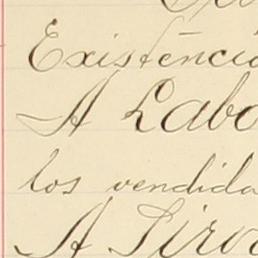 Existencia
A Labo
los vendida
A Giro